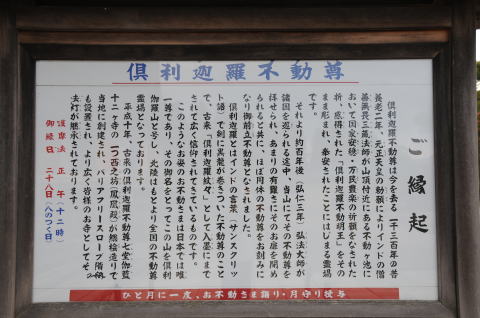 倶利迦羅不動尊
ご縁起
倶利迦羅不動尊は今を去る、一千三百年の昔
養老二年、元正天皇の勅願によりインドの僧
善無畏三蔵法師が山頂付近にある不動ヶ池に
おいて国家安穏・万民豊楽の祈願をなされた
折、感得された「倶利迦羅不動明王」をその
まま彫まれ、奉安されたことにはじまる霊場
です。
それより約百年後（弘仁三年）弘法大師が
諸国を巡られる途中、当山にてその不動尊を
拝せられ、あまりの有難さにそのお扉を閉め
られると共に、ほぼ同体の不動尊をお刻みに
なり御前立不動尊となされました。
倶利迦羅とはインドの言葉（サンスクリッ
ト語）で剣に黒龍が巻きついた不動尊のこと
で、古来、「倶利迦羅紋々」として入墨にまで
されて広く信仰されてきているものです。
このようなお姿のお不動さまは日本では唯
一尊であり、その御名をとってこの山を倶利
伽羅山と号し、北陸はもとより全国の不動尊
霊場となっております。
平成十年、古来の倶利迦羅不動尊七堂伽藍
十二ヶ寺の一つ西之坊鳳凰殿が総桧造りで
当地に創建され、バリアフリースロープ階段
も設置され、より広く皆様のお寺としてその
法灯が継承されております。
護摩法 正午（十二時）
御縁日 二十八日（八のつく日）
ひと月に一度、お不動さま詣り・月守り授与